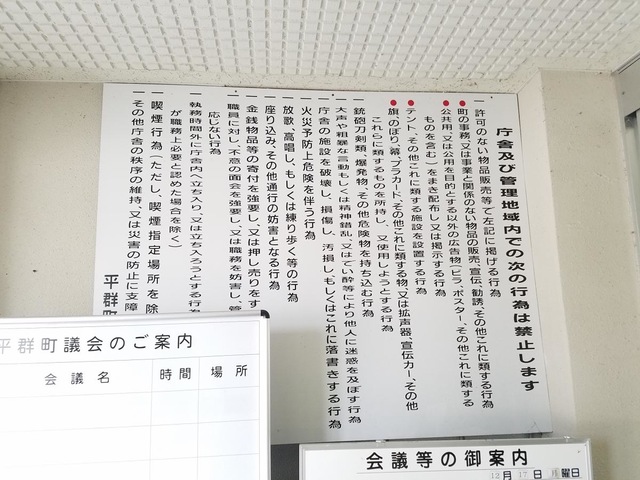 庁舎及び管理地域内での次の行為は禁止します
一 許可のない物品販売等で左記に掲げる行為
●町の事務又は事業と関係のない物品の販売、宣伝、勧誘、その他これに類する行為
●公共用又は公用を目的とする以外の広告物(ビラ、ポスター、その他これに類する
ものを含む)をまき配布し又は掲示する行為
●テント、その他これに類する施設を設置する行為
●旗のぼり、幕、プラカード、その他これに類する物、又は拡声器、宣伝カー、その他
これらに類するものを所持し、又使用しようとする行為
一 銃砲刀剣類、爆発物、その他危険物を持ち込む行為
一 大声や粗暴な言動もしくは精神錯乱、又はてい酔等により他人に迷惑を及ぼす行為
一 庁舎の施設を破壊し、損傷し、汚損し、もしくはこれに落書きする行為
一 火災予防上危険を伴う行為
一 放歌、高唱し、もしくは練り歩く等の行為
一 座り込み、その他通行の妨害となる行為
一 金銭物品等の寄付を強要し、又は押し売りをす
一 職員に対し、不意の面会を強要し、又は職務を妨害し、管
応じない行為
一 執務時間外に庁舎内へ立ち入り、又は立ち入ろうとする行為
が職務上必要と認めた場合を除く)
一 喫煙行為(ただし、喫煙指定場所を除
一 その他庁舎の秩序の維持、又は災害の防止に支障
平群町
平群町議会のご案内
会議名 時間 場所
会議等の御案内
12月17日 月曜日